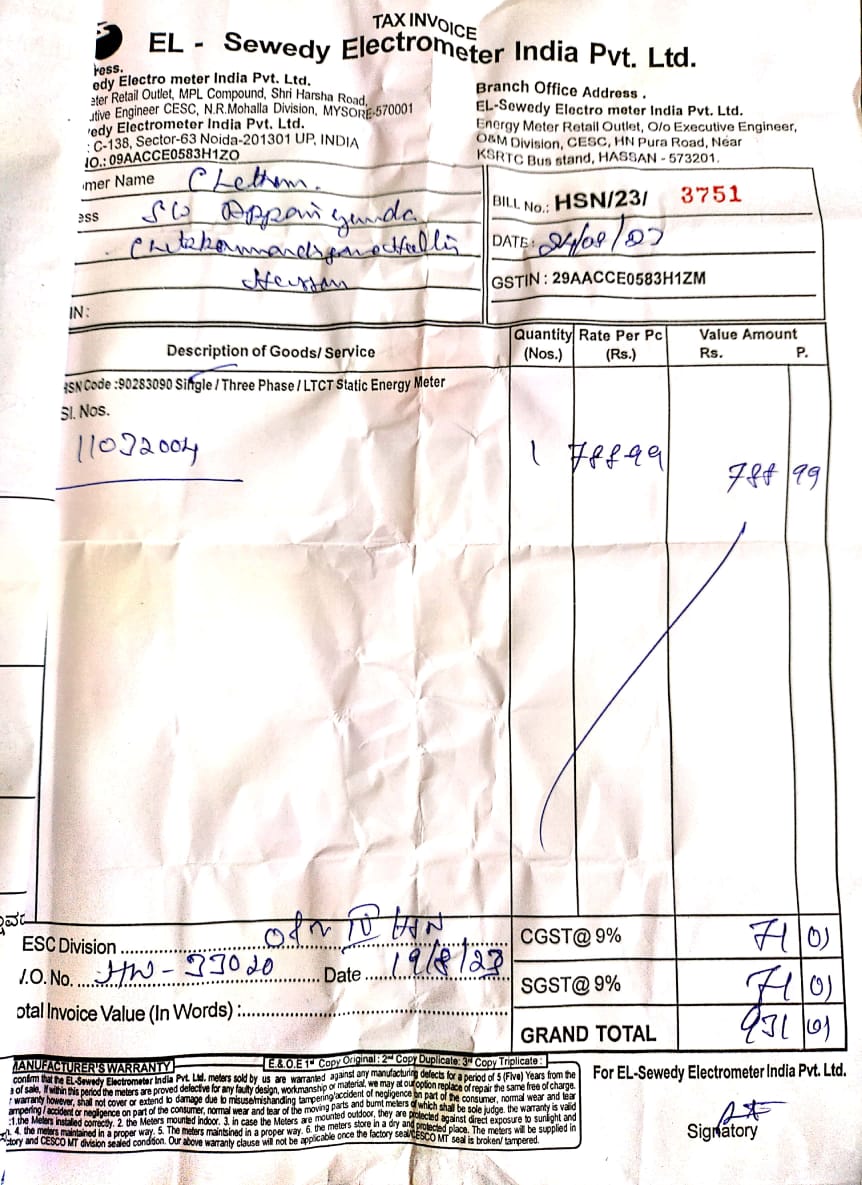 TAX INVOICE
EL - Sewedy Electrometer India Pvt. Ltd.
ress.
edy Electro meter India Pvt. Ltd.
eter Retail Outlet, MPL Compound, Shri Harsha Road,
utive Engineer CESC, N.R.Mohalla Division, MYSORE-570001
edy Electrometer India Pvt. Ltd.
: C-138, Sector-63 Noida-201301 UP, INDIA
NO.: 09AACCE0583H1ZO
Branch Office Address .
EL-Sewedy Electro meter India Pvt. Ltd.
Energy Meter Retail Outlet, O/o Executive Engineer,
O&M Division, CESC, HN Pura Road, Near
KSRTC Bus stand, HASSAN - 573201.
mer Name Chethan.
ess S/o
Hassan
IN:
BILL No.: HSN/23/ 3751
DATE: 24/08/23
GSTIN : 29AACCE0583H1ZM
Description of Goods/ Service
Quantity (Nos.) Rate Per Pc (Rs.) Value Amount Rs. P.
HSN Code :90283090 Single / Three Phase / LTCT Static Energy Meter
Sl. Nos.
11032004 1 788 99 788 99
ESC Division
CGST@ 9% 71 01
I.O. No. HW-33020 Date 19/8/23
SGST@ 9% 71 01
otal Invoice Value (In Words) :
GRAND TOTAL 931 01
MANUFACTURER'S WARRANTY E.& O.E 1st Copy Original : 2nd Copy Duplicate: 3rd Copy Triplicate :
confirm that the EL-Sewedy Electrometer India Pvt. Ltd. meters sold by us are warranted against any manufacturing defects for a period of 5 (Five) Years from the
of sale. If within this period the meters are proved defective for any faulty design, workmanship or material, we may at our option replace of repair the same free of charge.
warranty however, shall not cover or extend to damage due to misuse/mishandling tampering/accident of negligence on part of the consumer, normal wear and tear
ampering / accident or negligence on part of the consumer, normal wear and tear of the moving parts and burnt meters of which shall be sole judge. the warranty is valid
:1.the Meters installed correctly. 2. the Meters mounted indoor. 3. in case the Meters are mounted outdoor, they are protected against direct exposure to sunlight and
4. the meters maintained in a proper way. 5. The meters maintsined in a proper way. 6. the meters store in a dry and protected place. The meters will be supplied in
tory and CESCO MT division sealed condition. Our above warranty clause will not be applicable once the factory seal/CESCO MT seal is broken/ tampered.
For EL-Sewedy Electrometer India Pvt. Ltd.
Signatory